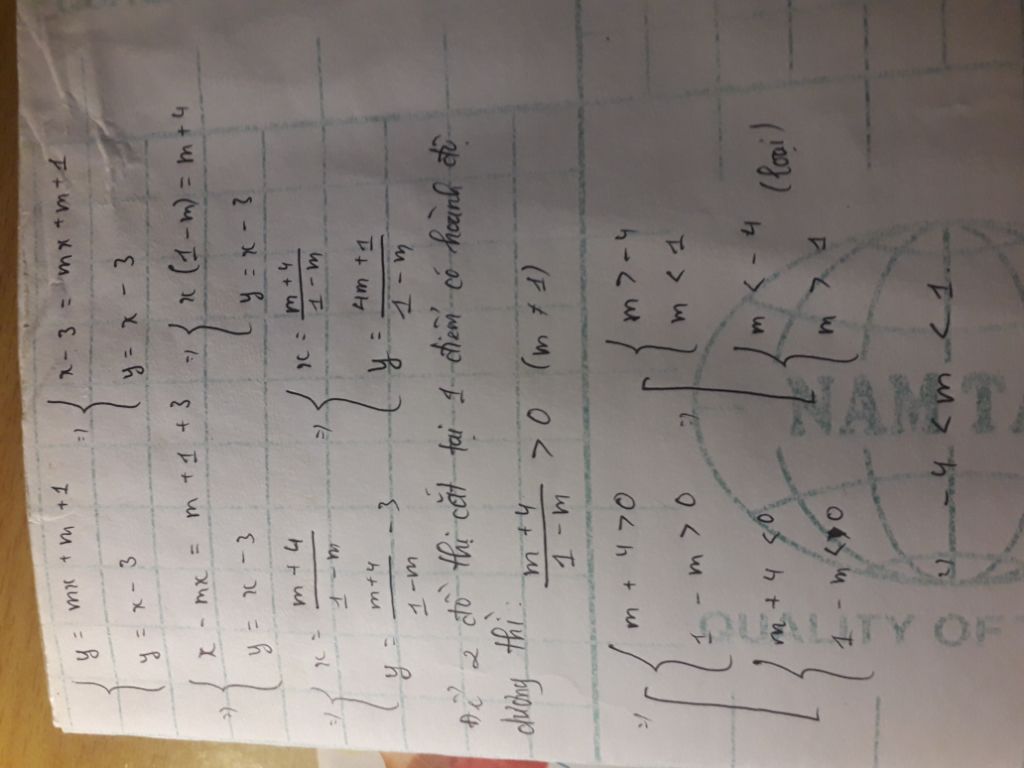 { y = mx + m + 1 => { x - 3 = mx + m + 1
{ y = x - 3 { y = x - 3
=> { x - mx = m + 1 + 3 => { x (1 - m) = m + 4
{ y = x - 3 { y = x - 3
=> { x = \frac{m + 4}{1 - m} => { x = \frac{m + 4}{1 - m}
{ y = \frac{m + 4}{1 - m} - 3 { y = \frac{4m + 1}{1 - m}
Để 2 đồ thị cắt tại 1 điểm có hoành độ
dương thì:
\frac{m + 4}{1 - m} > 0 (m ≠ 1)
=> [ { m + 4 > 0 => [ { m > -4
{ 1 - m > 0 { m < 1
{ m + 4 < 0 { m < -4
{ 1 - m < 0 { m > 1 (loại)
=> -4 < m < 1
NAM T
QUALITY OF